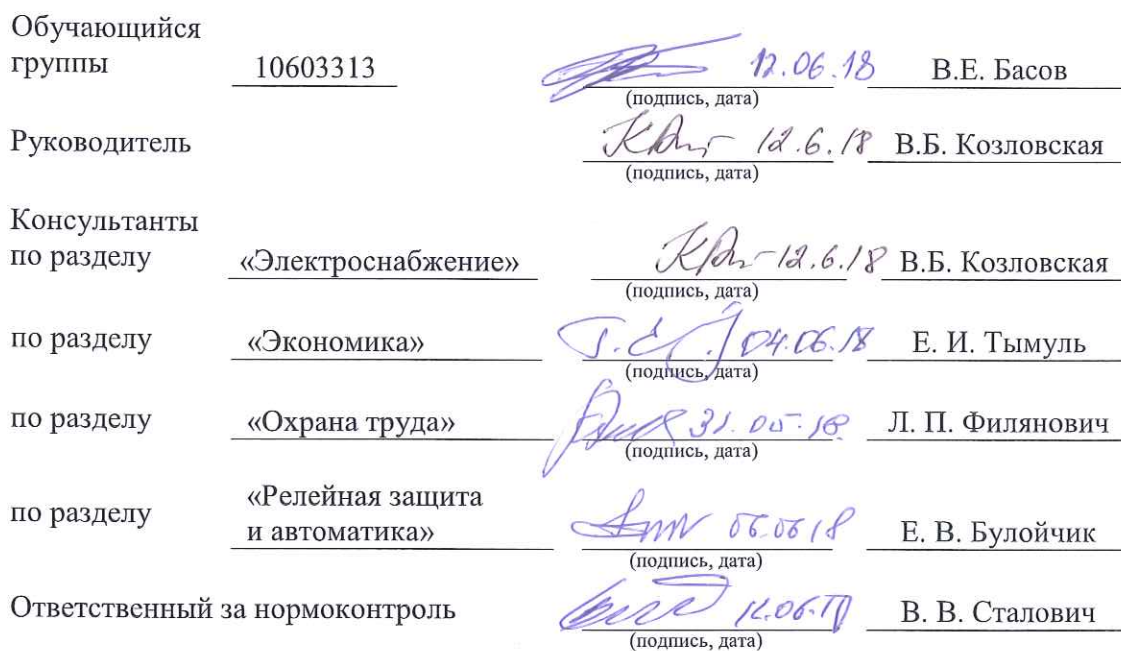 Обучающийся
группы 10603313 12.06.18 В.Е. Басов
(подпись, дата)
Руководитель 12.6.18 В.Б. Козловская
(подпись, дата)
Консультанты
по разделу «Электроснабжение» 12.6.18 В.Б. Козловская
(подпись, дата)
по разделу «Экономика» 04.06.18 Е. И. Тымуль
(подпись, дата)
по разделу «Охрана труда» 31.05.18 Л. П. Филянович
(подпись, дата)
«Релейная защита
по разделу и автоматика» 06.06.18 Е. В. Булойчик
(подпись, дата)
Ответственный за нормоконтроль В. В. Сталович
(подпись, дата)